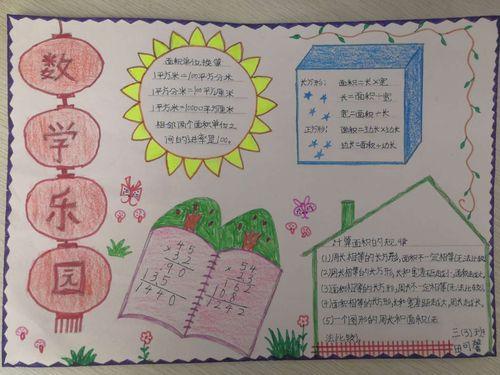 数学乐园
面积单位换算
1平方米=100平方分米
1平方分米=100平方厘米
1平方米=10000平方厘米
相邻两个面积单位之
间的进率是100。
长方形: 面积=长×宽
长=面积÷宽
宽=面积÷长
正方形: 面积=边长×边长
边长=面积÷边长
45
×32
90
135
1440
54
×23
162
108
1242
计算面积的规律
(1)周长相等的长方形,面积不一定相等(无法比较)
(2)周长相等的长方形,长和宽差距越小,面积越大。
(3)面积相等的长方形,周长不一定相等(无法比较)
(4)面积相等的长方形,长和宽差距越大,周长越长。
(5)一个图形的周长和面积(无
法比较)。
三(3)班